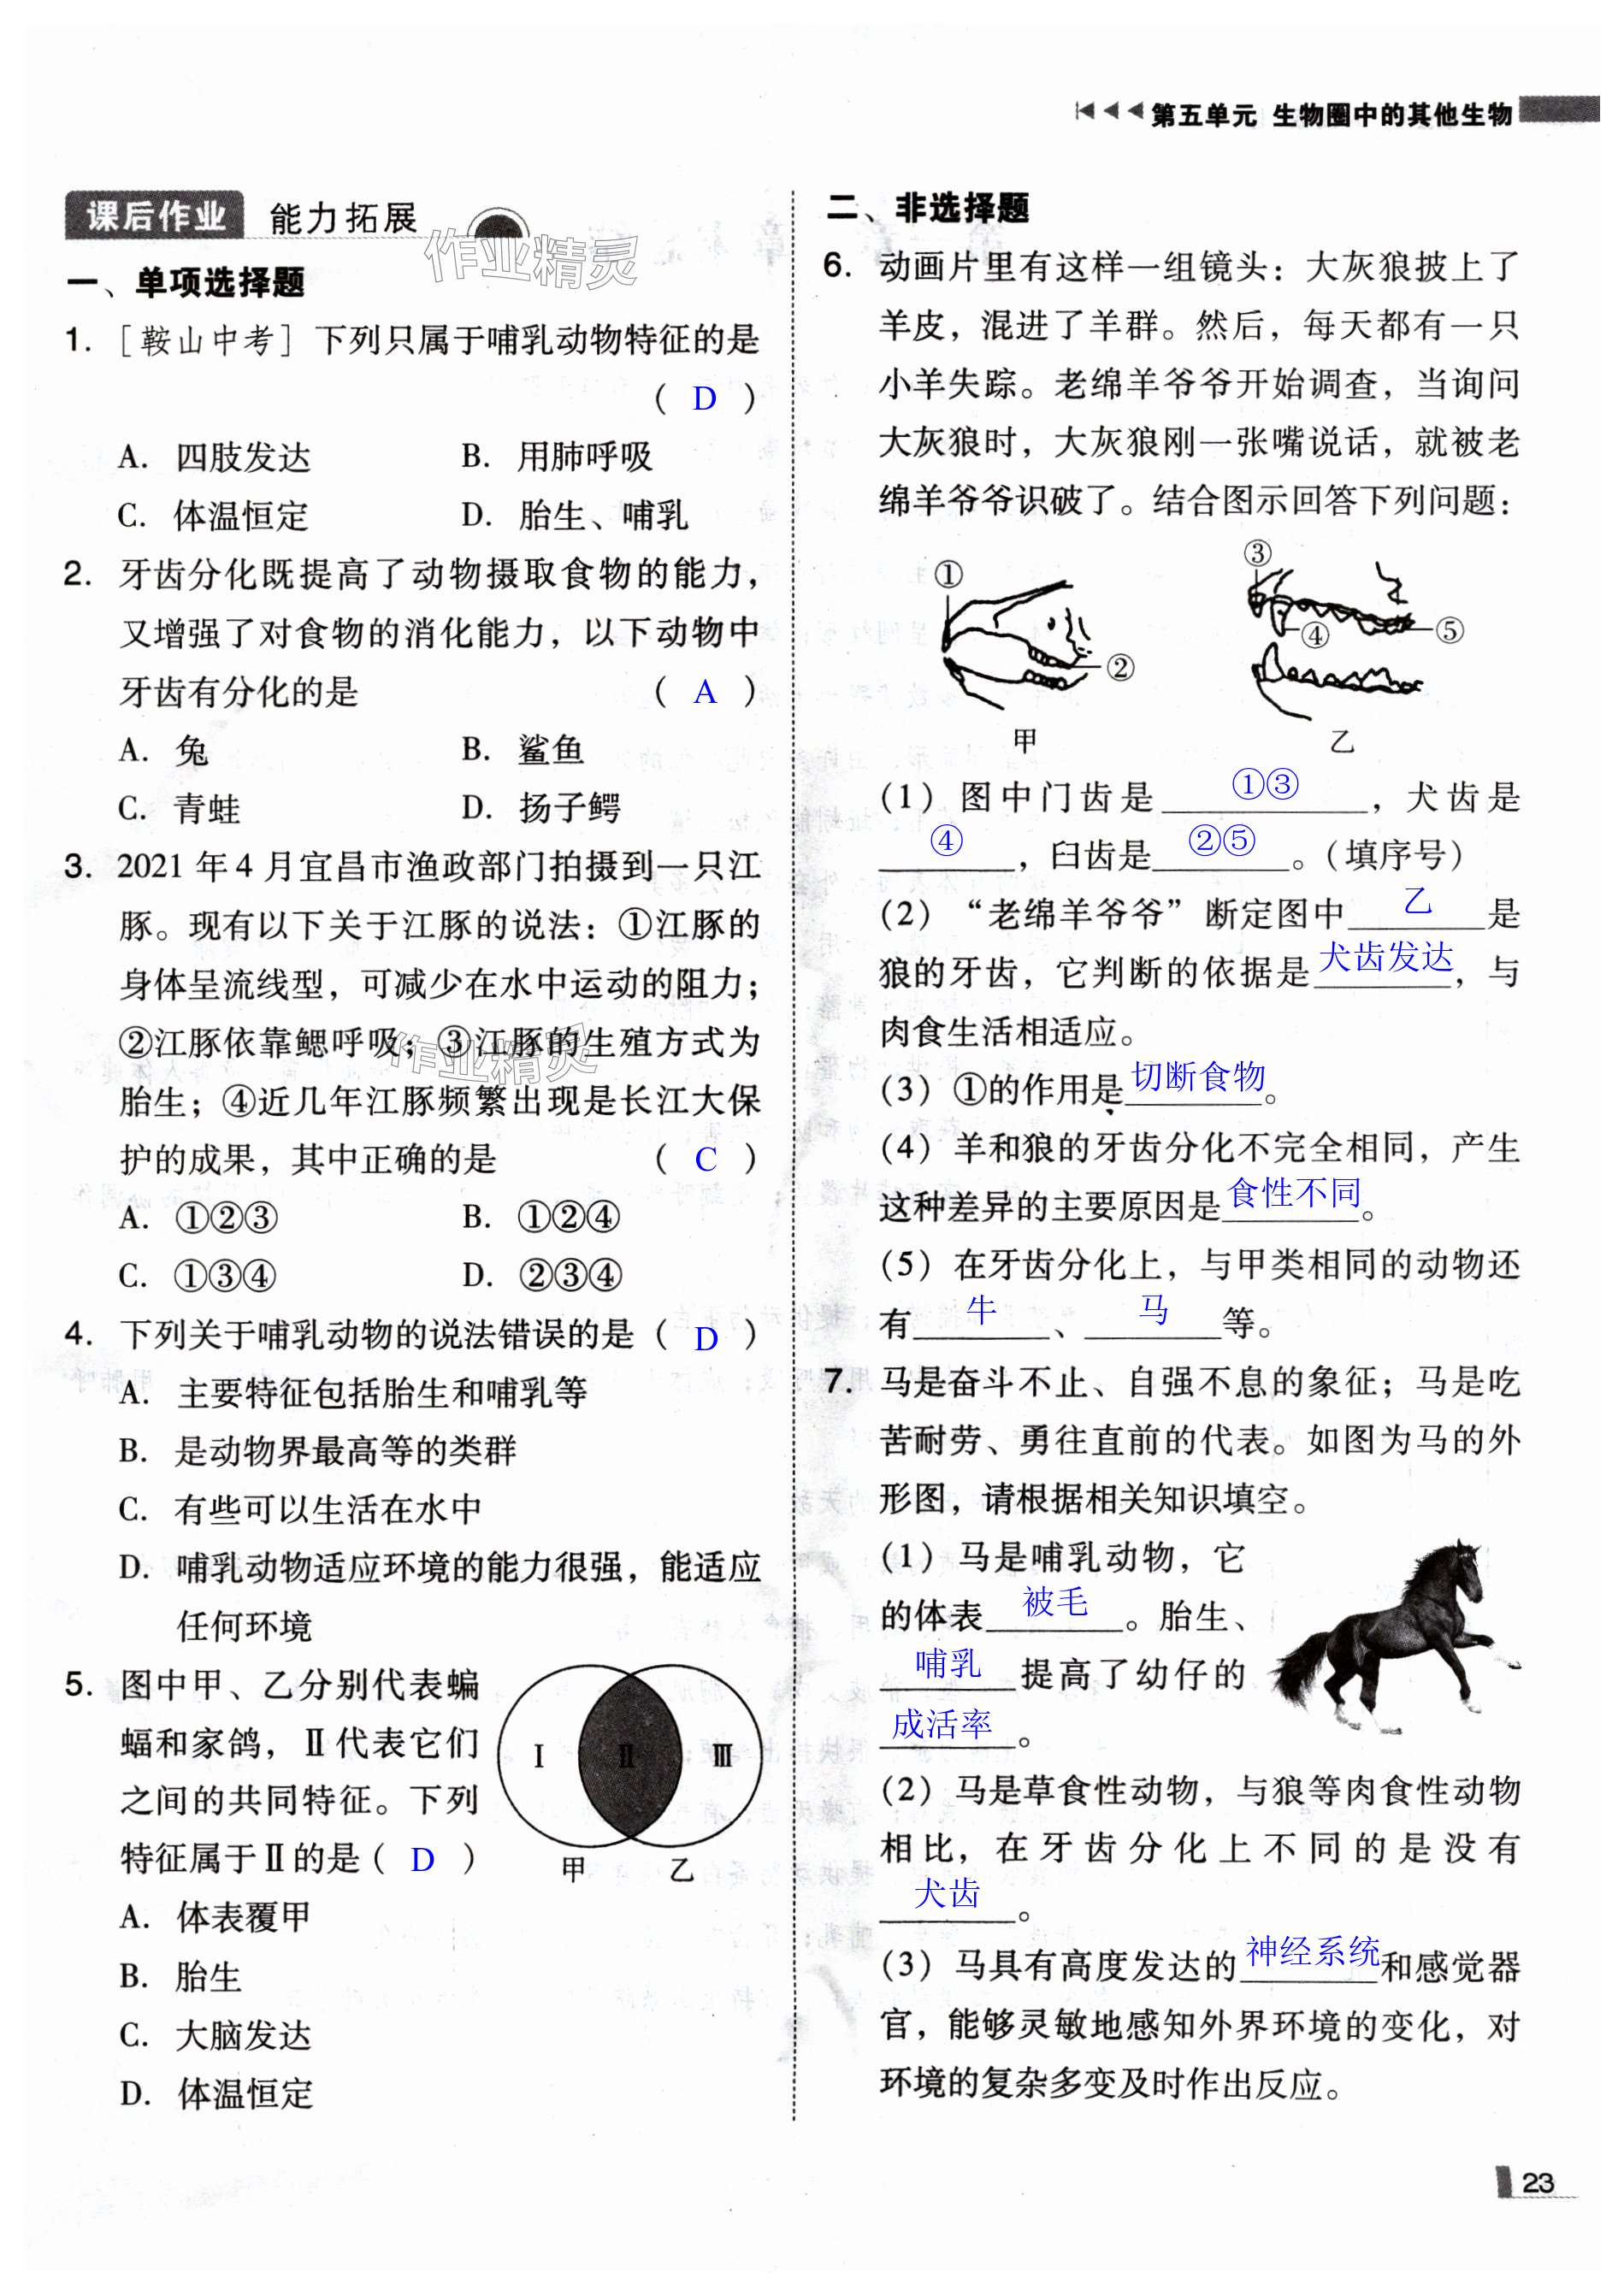 第五单元 生物圈中的其他生物
课后作业 能力拓展
作业精灵
一、单项选择题
1. [鞍山中考] 下列只属于哺乳动物特征的是
( D )
A. 四肢发达 B. 用肺呼吸
C. 体温恒定 D. 胎生、哺乳
2. 牙齿分化既提高了动物摄取食物的能力，
又增强了对食物的消化能力，以下动物中
牙齿有分化的是 ( A )
A. 兔 B. 鲨鱼
C. 青蛙 D. 扬子鳄
3. 2021 年 4 月宜昌市渔政部门拍摄到一只江
豚。现有以下关于江豚的说法：①江豚的
身体呈流线型，可减少在水中运动的阻力；
②江豚依靠鳃呼吸；③江豚的生殖方式为
作业精灵
胎生；④近几年江豚频繁出现是长江大保
护的成果，其中正确的是 ( C )
A. ①②③ B. ①②④
C. ①③④ D. ②③④
4. 下列关于哺乳动物的说法错误的是 ( D )
A. 主要特征包括胎生和哺乳等
B. 是动物界最高等的类群
C. 有些可以生活在水中
D. 哺乳动物适应环境的能力很强，能适应
任何环境
5. 图中甲、乙分别代表蝙
蝠和家鸽，Ⅱ代表它们
之间的共同特征。下列
特征属于Ⅱ的是 ( D )
Ⅰ Ⅱ Ⅲ
甲 乙
A. 体表覆甲
B. 胎生
C. 大脑发达
D. 体温恒定
二、非选择题
6. 动画片里有这样一组镜头：大灰狼披上了
羊皮，混进了羊群。然后，每天都有一只
小羊失踪。老绵羊爷爷开始调查，当询问
大灰狼时，大灰狼刚一张嘴说话，就被老
绵羊爷爷识破了。结合图示回答下列问题：
① ② ③ ④ ⑤
甲 乙
(1) 图中门齿是 ①③ ，犬齿是
④ ，臼齿是 ②⑤ 。(填序号)
(2) “老绵羊爷爷”断定图中 乙 是
狼的牙齿，它判断的依据是 犬齿发达 ，与
肉食生活相适应。
(3) ①的作用是 切断食物 。
(4) 羊和狼的牙齿分化不完全相同，产生
这种差异的主要原因是 食性不同 。
(5) 在牙齿分化上，与甲类相同的动物还
有 牛 、 马 等。
7. 马是奋斗不止、自强不息的象征；马是吃
苦耐劳、勇往直前的代表。如图为马的外
形图，请根据相关知识填空。
(1) 马是哺乳动物，它
的体表 被毛 。胎生、
哺乳 提高了幼仔的
成活率 。
(2) 马是草食性动物，与狼等肉食性动物
相比，在牙齿分化上不同的是没有
犬齿 。
(3) 马具有高度发达的 神经系统 和感觉器
官，能够灵敏地感知外界环境的变化，对
环境的复杂多变及时作出反应。
23